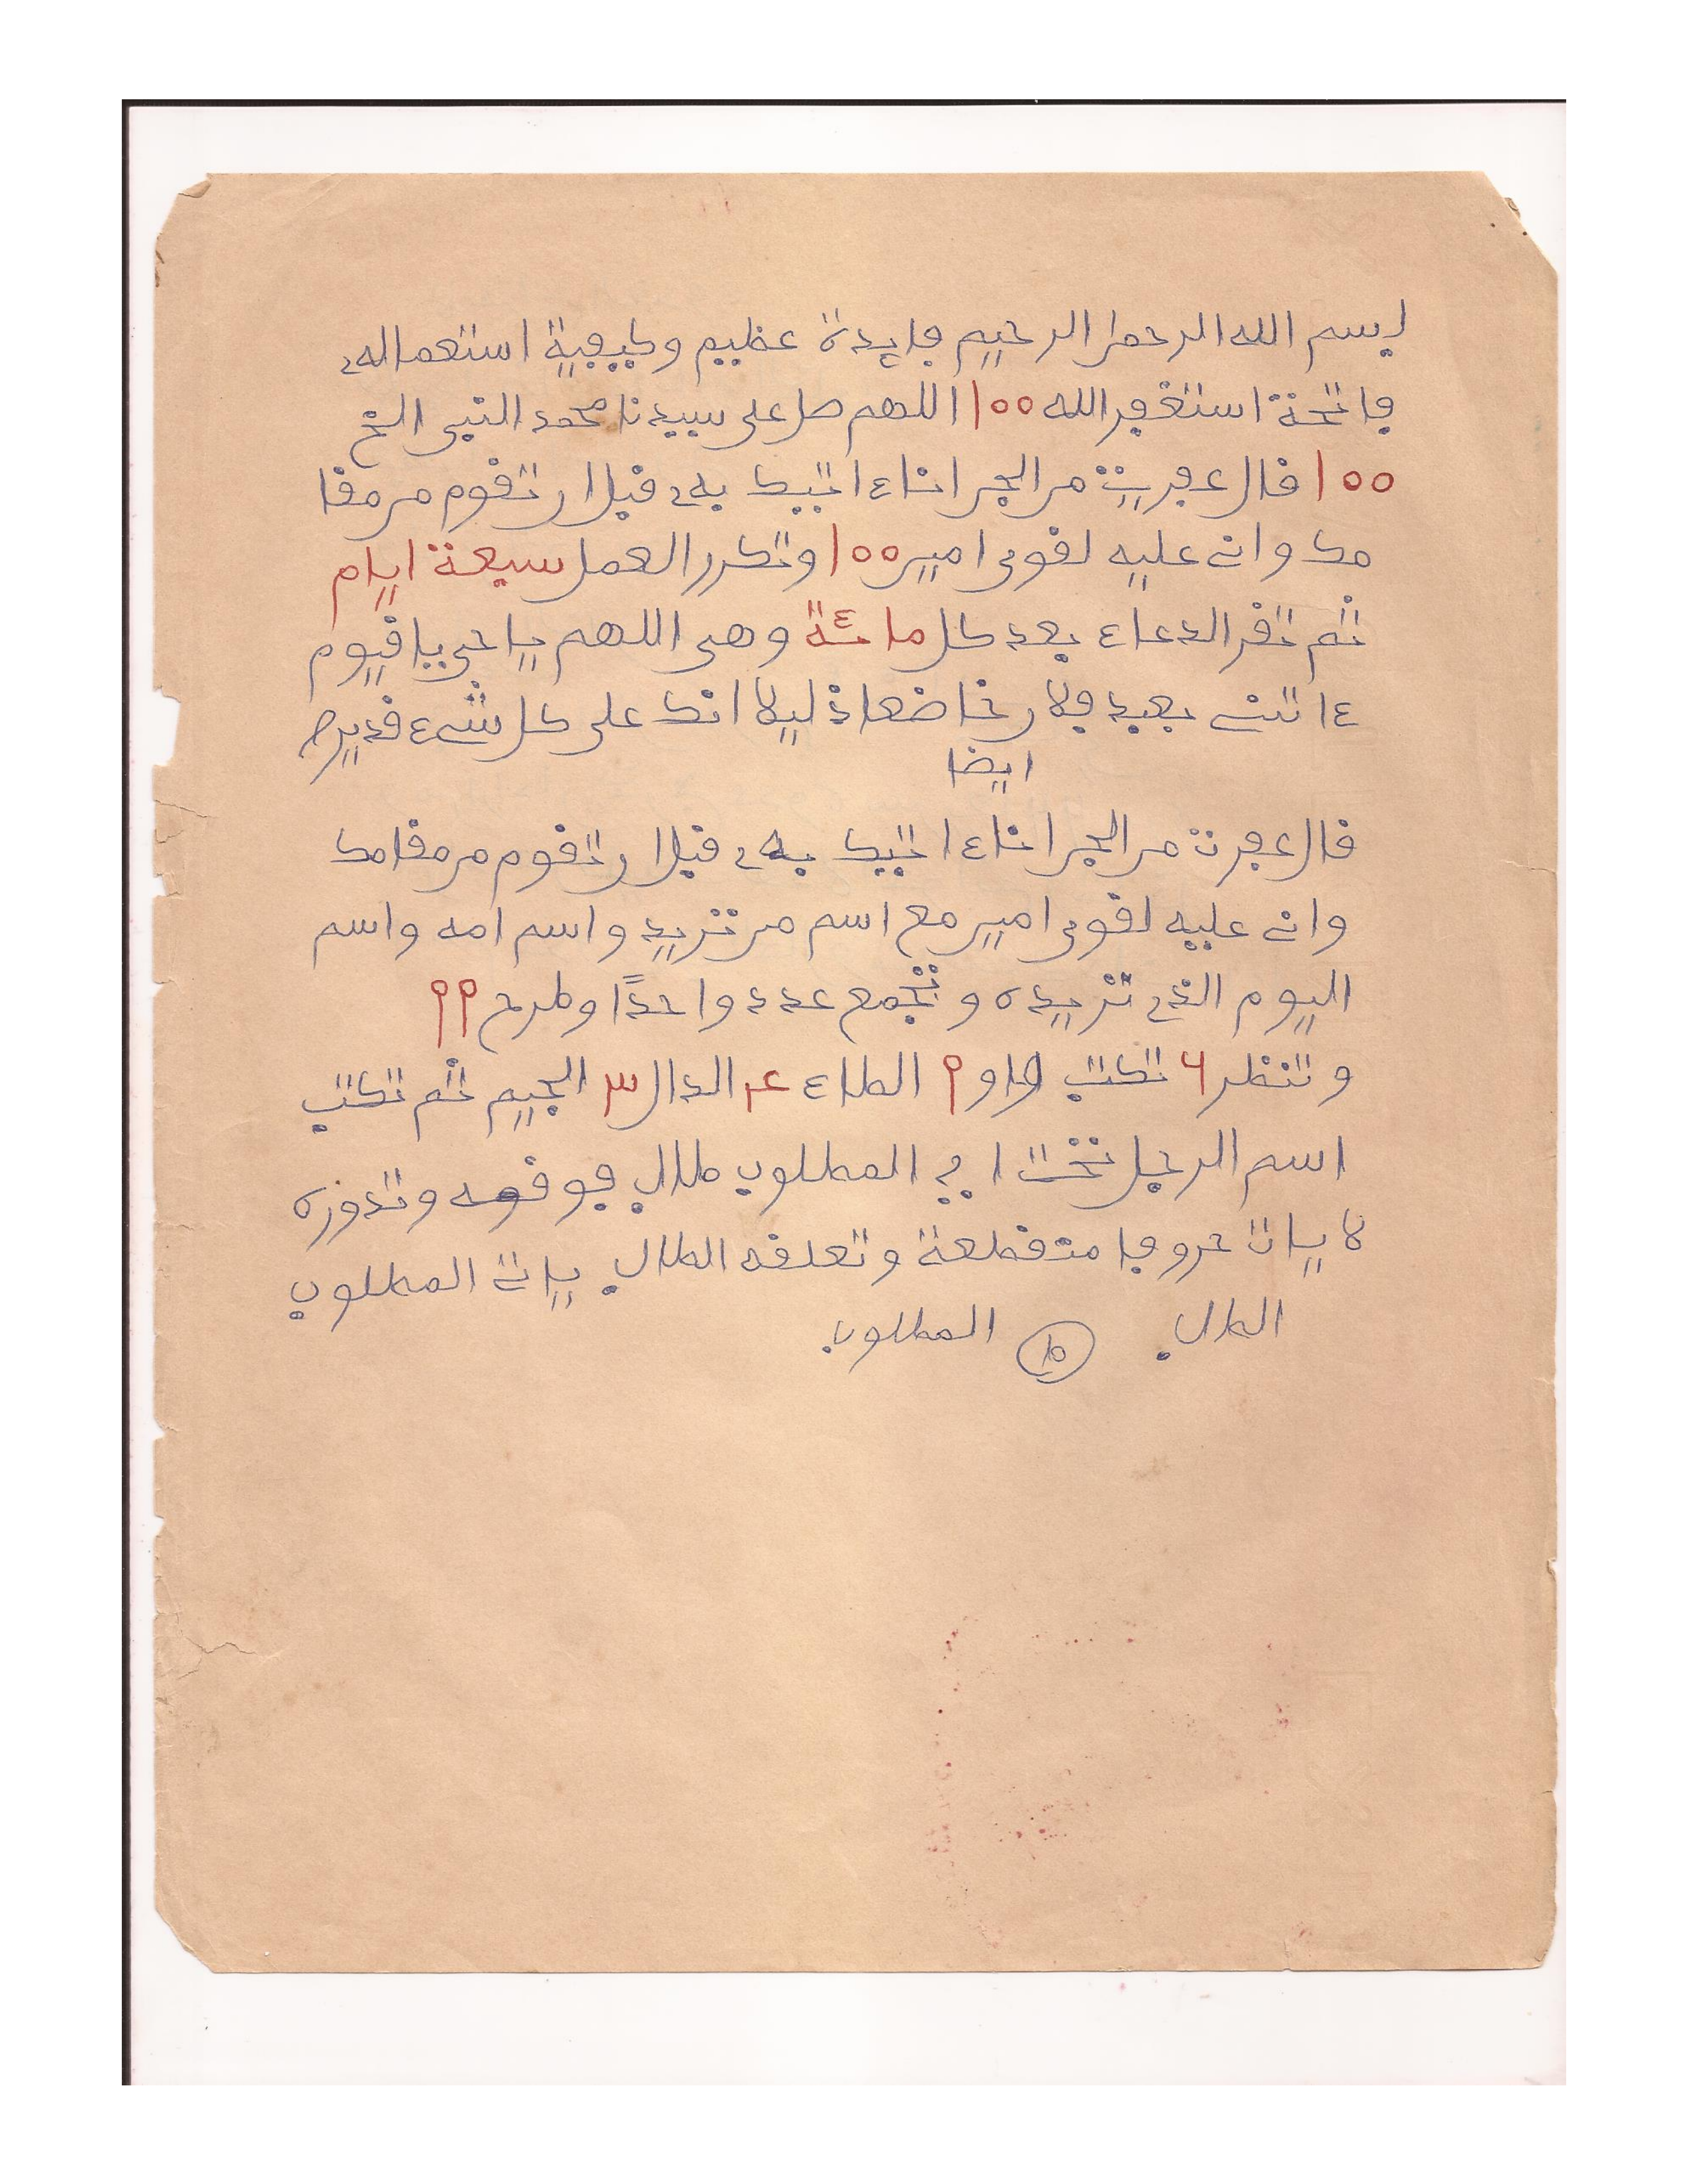 بسم الله الرحمن الرحيم فايدة عظيم وكيفية استعماله
فاتحة استغفر الله ١٠٠ اللهم صل على سيدنا محمد النبي الخ
١٠٠ قال عفريت من الجن انا ءاتيك به قبل ان تقوم من مقا
مك وانى عليه لقوى امين ١٠٠ وتكرر العمل سبعة ايام
ثم تقر الدعاء بعد كل مائة وهى اللهم يا حى يا قيوم
ءاتنى بعبد فلان خاضعا ذليلا انك على كل شىء قدير
ايضا
قال عفرت من الجن انا ءاتيك به قبل ان تقوم من مقامك
وانى عليه لقوى امين مع اسم من تريد واسم امه واسم
اليوم الذى تريده وتجمع عدد واحدًا وطرح ٩٩
وتنظر ٦ تكتب الواو ٩ الطاء ٤ الدال ٣ الجيم ثم تكتب
اسم الرجل تحت اى المطلوب طالب فوقه وتدوره
لا يات حروفا متقطعة وتعلقه الطالب يات المطلوب
الطالب ط المطلوب